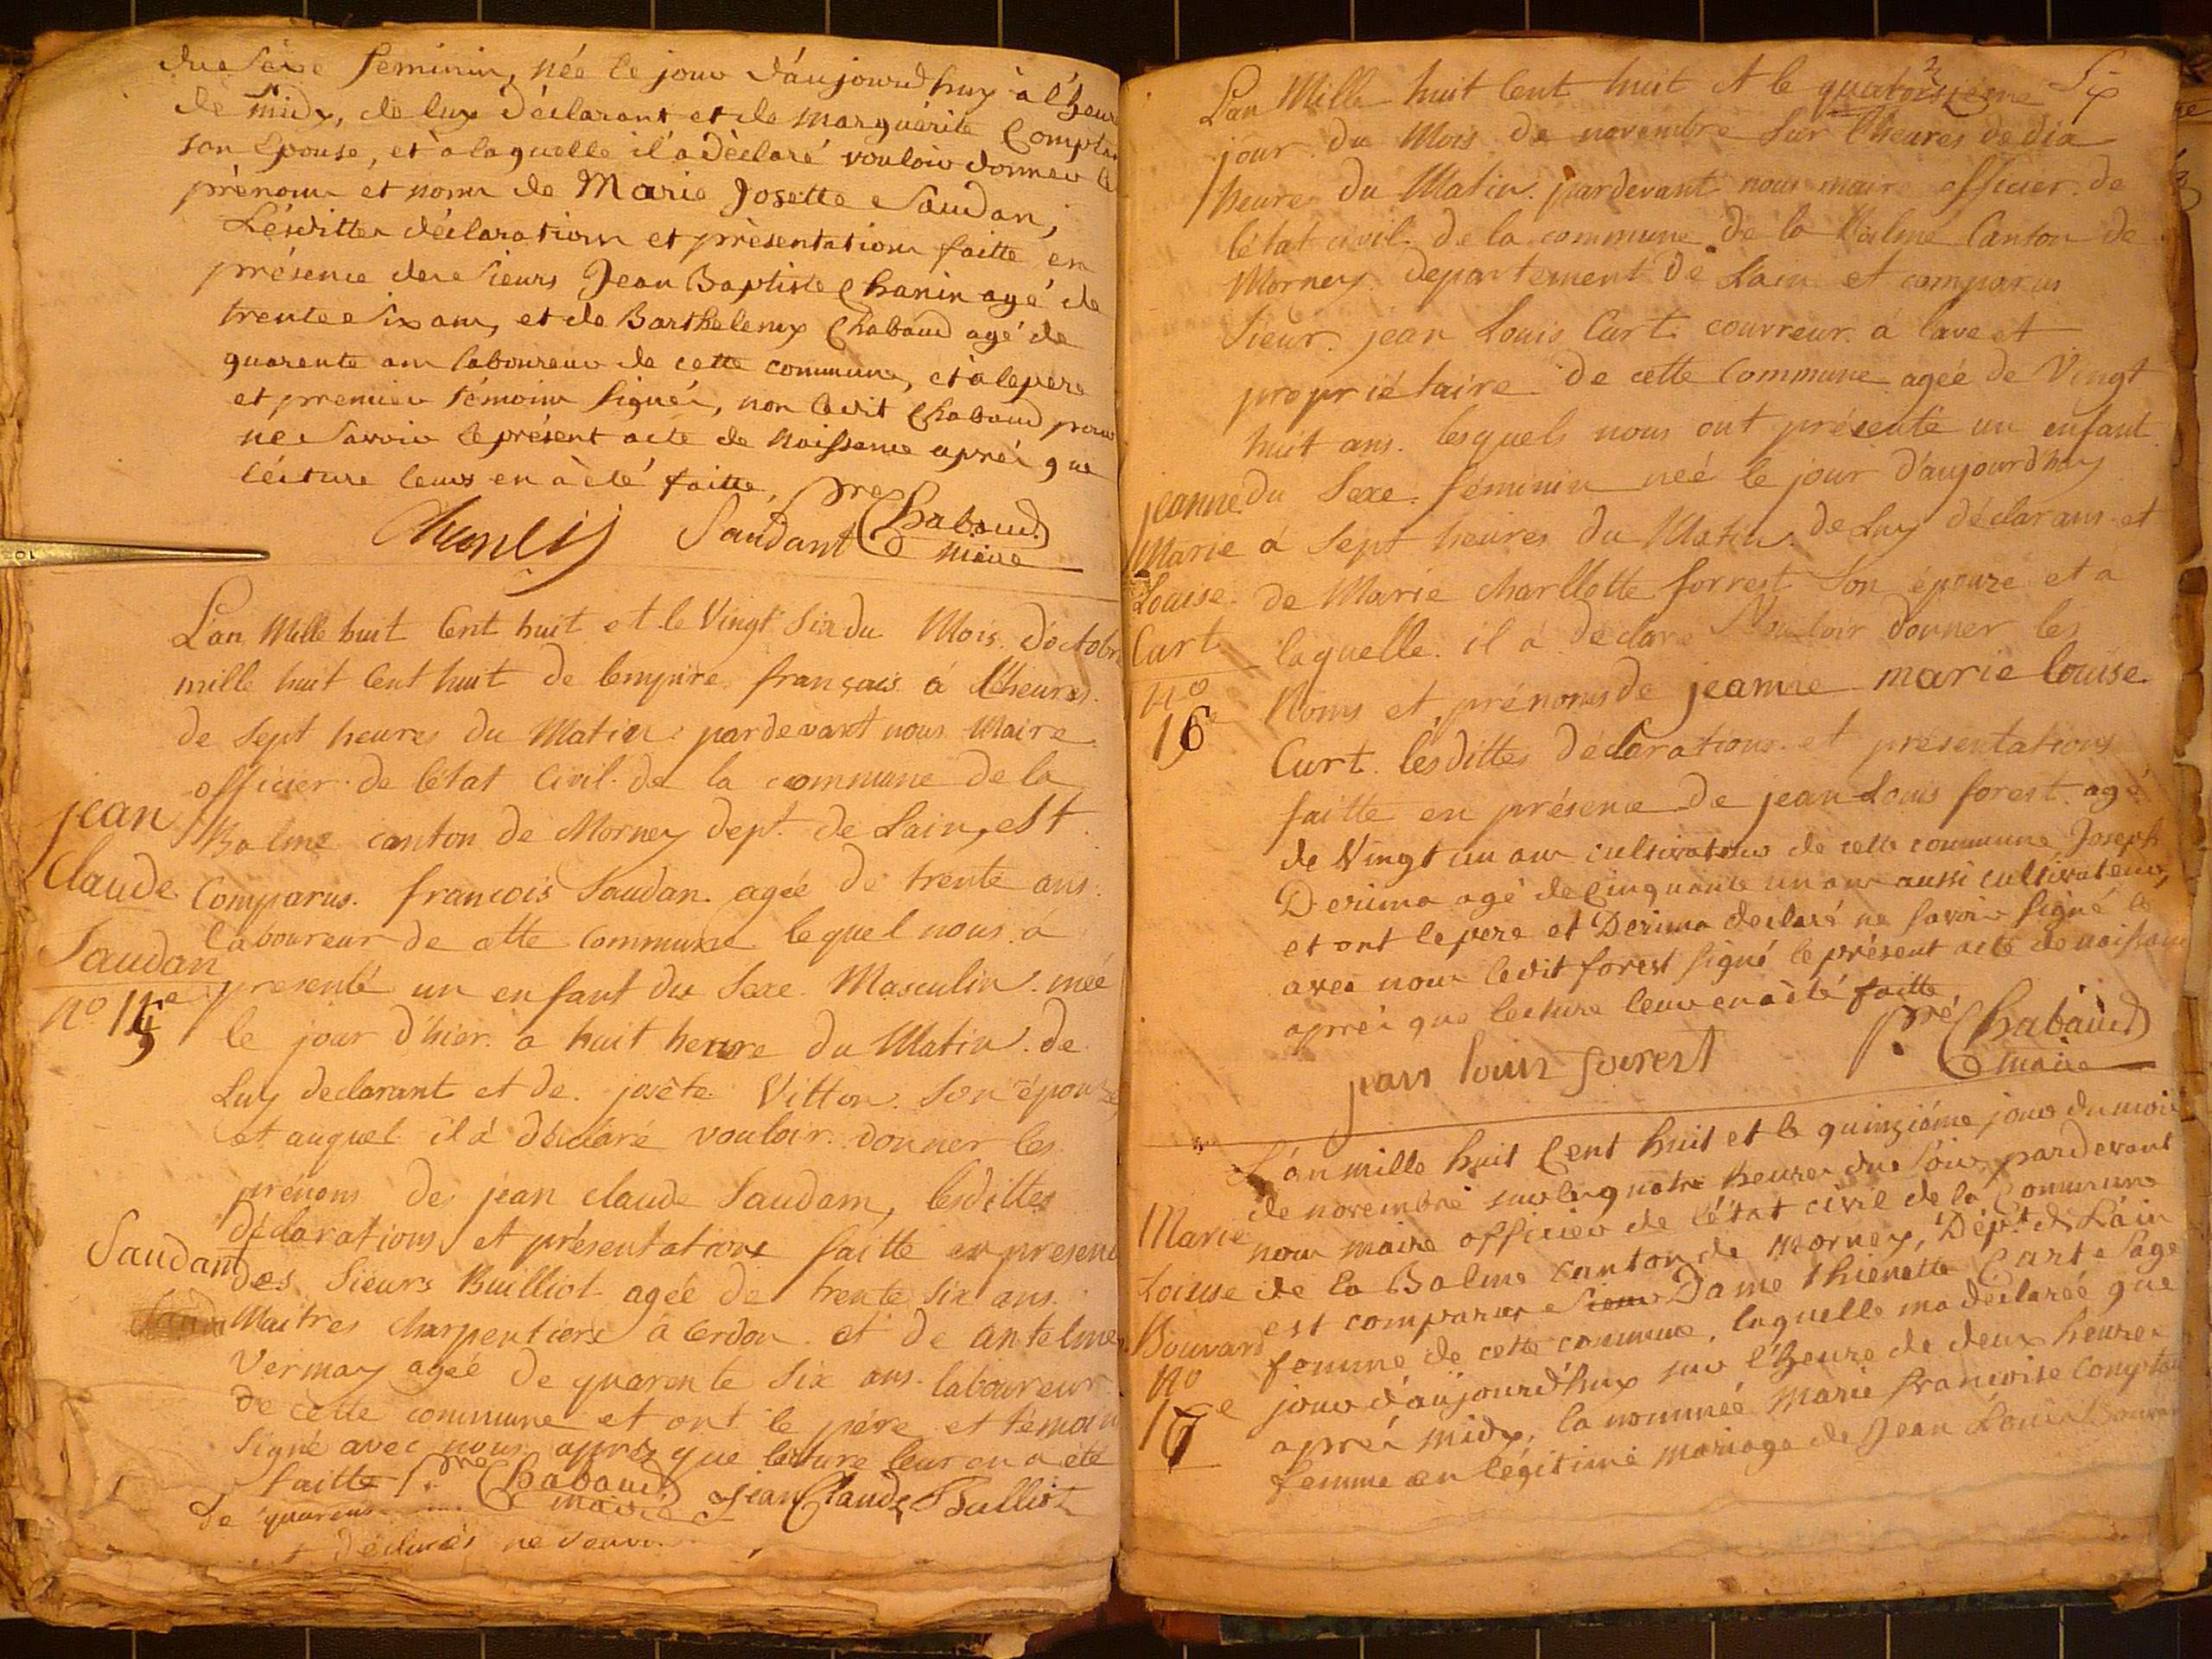 du Sexe féminin, née le jour d'aujourd'huy à l'heure
de midy, de luy déclarant et de Marguérite Comptan
son Epouse, et à laquelle il a déclaré vouloir donner le
prénom et nom de Marie Josette Saudan,
Lésdittes déclaration et présentation faitte en
présence des Sieurs Jean Baptiste Chanin agé de
trente Six ans, et de Barthelemy Chabaud agé de
quarente ans laboureur de cette commune, et à le pere
et premier témoin Signés, non ledit Chabaud pour
ne Savoir le présent acte de Naissance aprés que
lécture leurs en à été faitte,
Saudant pre Chabaud
maire
L'an Mille huit Cent huit et le Vingt Six du Mois d'octobre
mille huit Cent huit de lempire français à l'heures
de Sept heures du Matin pardevant nous Maire
officier de létat Civil de la commune de la
Balme canton de Mornex dept. de Lain, est
jean
Claude
Saudan
no 15e
Comparus francois Saudan agée de trente ans
laboureur de cette Commune lequel nous à
presenté un enfant du Sexe Masculin née
le jour d'hier a huit heure du Matin de
Luy declarant et de josète Vitton Son épouze
et auquel il à déclaré vouloir donner les
prénoms de jean claude Saudam, lesdittes
déclarations et présentations faitte en presence
Saudant
des Sieurs Builliot agée de trente Six ans
Maitres charpentiers à Cerdon et de antelme
Vermay agée de quarente Six ans laboureur
de cette commune et ont le pére et témoin
Signé avec nous aprés que lecture leur en a été
faitte pre Chabaud maire jean Claude Bulliot
de quarente
déclarés ne savoir
Six
Lan Mille huit Cent huit et le quatorzième
jour du Mois de novembre Sur l'heures de dix
heures du Matin pardevant nous maire officier de
létat civil de la commune de la Balme Canton de
Mornex departement de Lain et comparus
Sieur jean Louis Curt couvreur à lave et
propriétaire de cette Commune agée de Vingt
huit ans lesquels nous ont présenté un enfant
jeanne
Marie
Louise
Curt
no
16e
du Sexe féminin neé le jour d'aujourdhuy
à Sept heures du Matin de Luy déclarans et
de Marie charllotte forrest Son épouze et à
laquelle il à déclaré Vouloir donner les
Noms et prénoms de jeanne marie louise
Curt lesdittes déclarations et présentations
faitte en présence de jean Louis forest agé
de Vingt un ans cultivateur de cette commune Joseph
Derima agé de Cinquante un ans aussi cultivateur,
et ont le pere et Derima declaré ne Savoir Signé le
avec nous ledit forest Signé le présent acte de naissance
aprés que lecture leur en à été faitte
jean louis forest
pre Chabaud
maire
L'an mille huit Cent huit et le quinziéme jour du mois
de novembre sur les quatre heures du Soir, pardevant
nous maire officier de l'état civil de la Commune
de la Balme canton de Mornex, Dépt. de Lain
Marie
Louise
Bouvard
no
17e
est comparus Sieur Dame thienette Curt Sage
femme de cette commune, laquelle m'a déclarée que
jour d'aujourd'huy sur l'heure de deux heures
aprés midy, la nommée Marie francoise Comptan
femme en légitime mariage de Jean Louis Bouvard